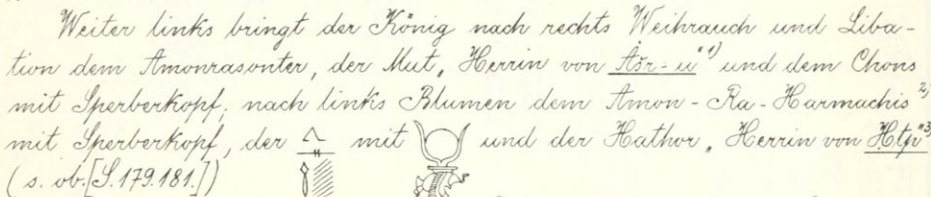 Weiter links bringt der König nach rechts Weihrauch und Liba-
tion dem Amonrasonter, der Mut „Herrin von Ašr-u“ 1) und dem Chons
mit Sperberkopf; nach links Blumen dem Amon-Ra-Harmachis 2)
mit Sperberkopf, der mit und der Hathor „Herrin von Htp“ 3)
(s. ob. [S. 179. 181.])